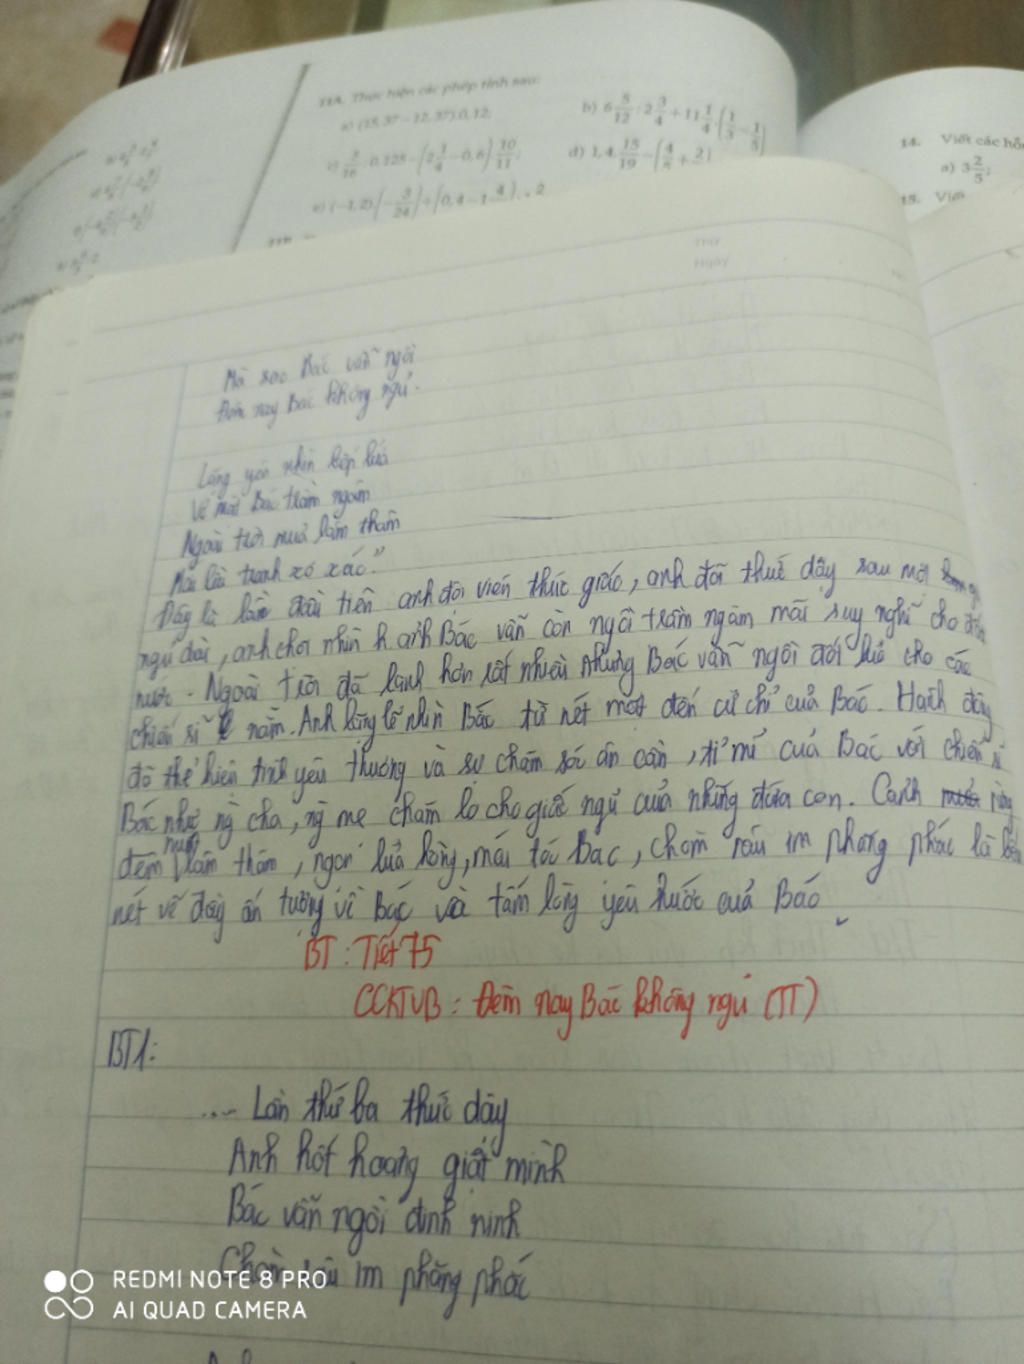 11A. Thực hiện các phép tính sau:
a) (15,37 - 12,37).0,12;
b) 6 5/12 : 2 3/4 + 11 1/4 . (1/3 - 1/5)
d) 1,4. 15/19 - (4/5 + 2
14. Viết các hỗ
a) 3 2/5;
15. Viết
Thứ
Ngày
Mà sao Bác vẫn ngồi
Đêm nay Bác không ngủ.
Lặng yên nhìn bếp lửa
Vẻ mặt Bác trầm ngâm
Ngoài trời mưa lâm thâm
Mái lều tranh xơ xác."
Đây là lần đầu tiên anh đội viên thức giấc, anh đã thức dậy sau một
ngủ dài, anh chợt nhìn h ảnh Bác vẫn còn ngồi trầm ngâm mãi suy nghĩ cho đất
nước. Ngoài trời đã lạnh hơn rất nhiều nhưng Bác vẫn ngồi đốt lửa cho các
chiến sĩ nằm. Anh lặng lẽ nhìn Bác từ nét mặt đến cử chỉ của Bác. Hành động
đó thể hiện tình yêu thương và sự chăm sóc ân cần, tỉ mỉ của Bác với chiến sĩ
Bác như ng cha, ng mẹ chăm lo cho giấc ngủ của những đứa con. Cảnh rừng
đêm mưa lâm thâm, ngọn lửa hồng, mái tóc Bac, chòm râu im phăng phắc là
nét vẽ đầy ấn tượng về Bác và tấm lòng yêu nước của Bác
BT: Tiết 75
CCKTVB: Đêm nay Bác không ngủ (TT)
BT1:
.... Lần thứ ba thức dậy
Anh hốt hoảng giật mình
Bác vẫn ngồi đinh ninh
Chòm râu im phăng phắc
REDMI NOTE 8 PRO
AI QUAD CAMERA